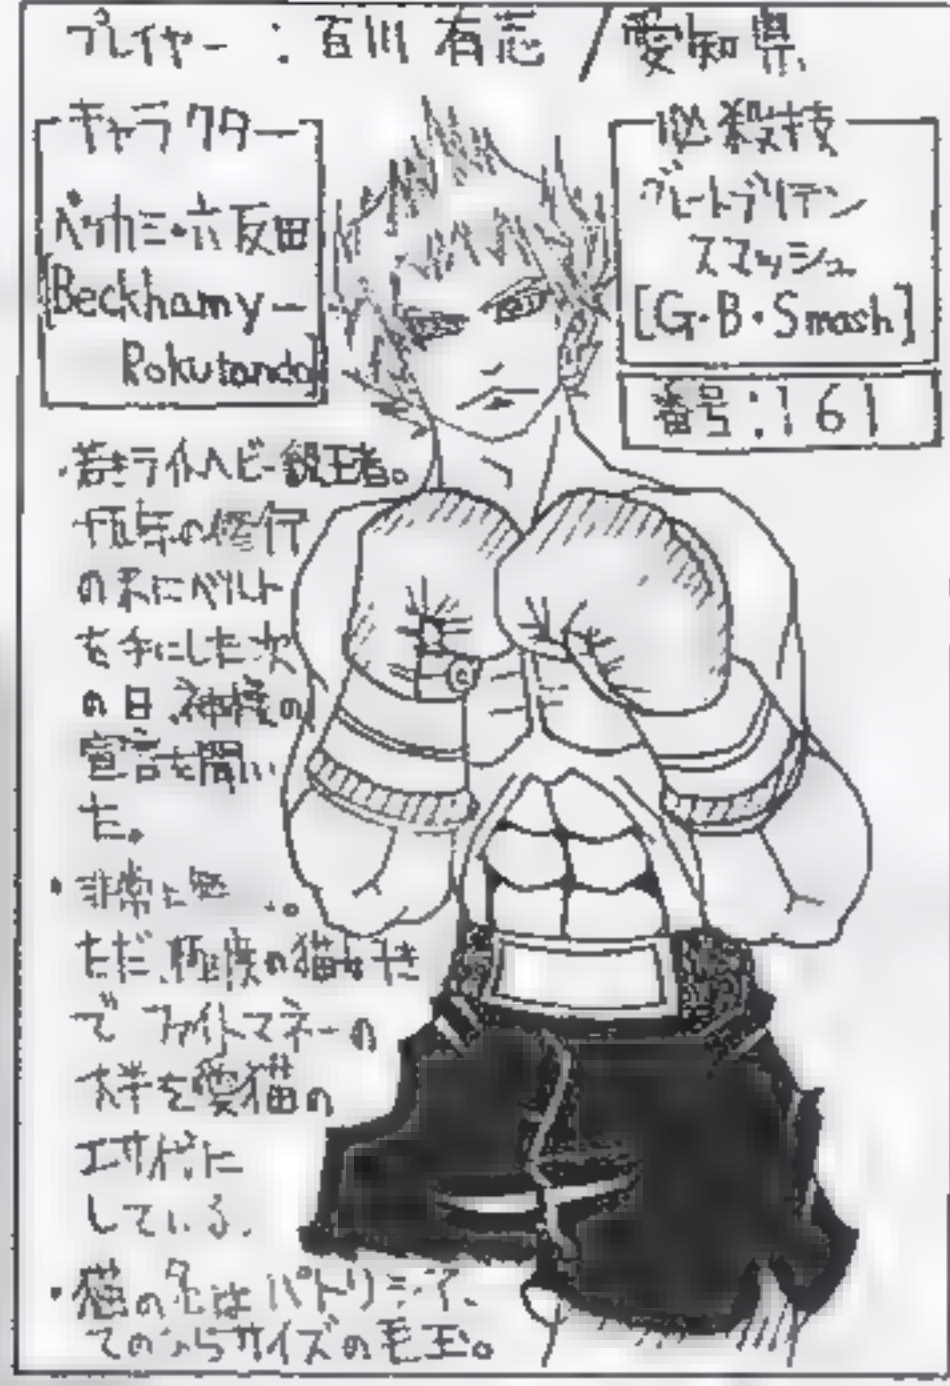 プレイヤー：百川 有志／愛知県
キャラクター
ベッカミ・六反田
[Beckhamy–
Rokutanda]
必殺技
グレートブリテン
スマッシュ
[G・B・Smash]
番号：161
・若きライトヘビー級王者。
の修行
の末にベルト
を手にした次
の日、神様の
電話を聞い
た。
・非常に
ただ、極度の猫好き
で ファイトマネーの
大半を愛猫の
エサ代に
している。
・猫の名はパトリシア、
てのひらサイズの毛玉。